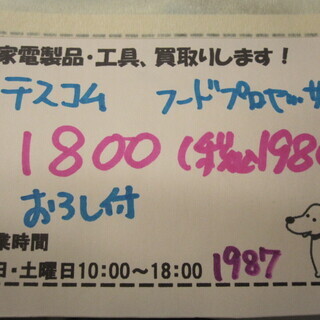 家電製品・工具、買取りします！
テスコム フードプロセッサ
1800 (税込1980
おろし付
業時間
日・土曜日10:00～18:00 1987